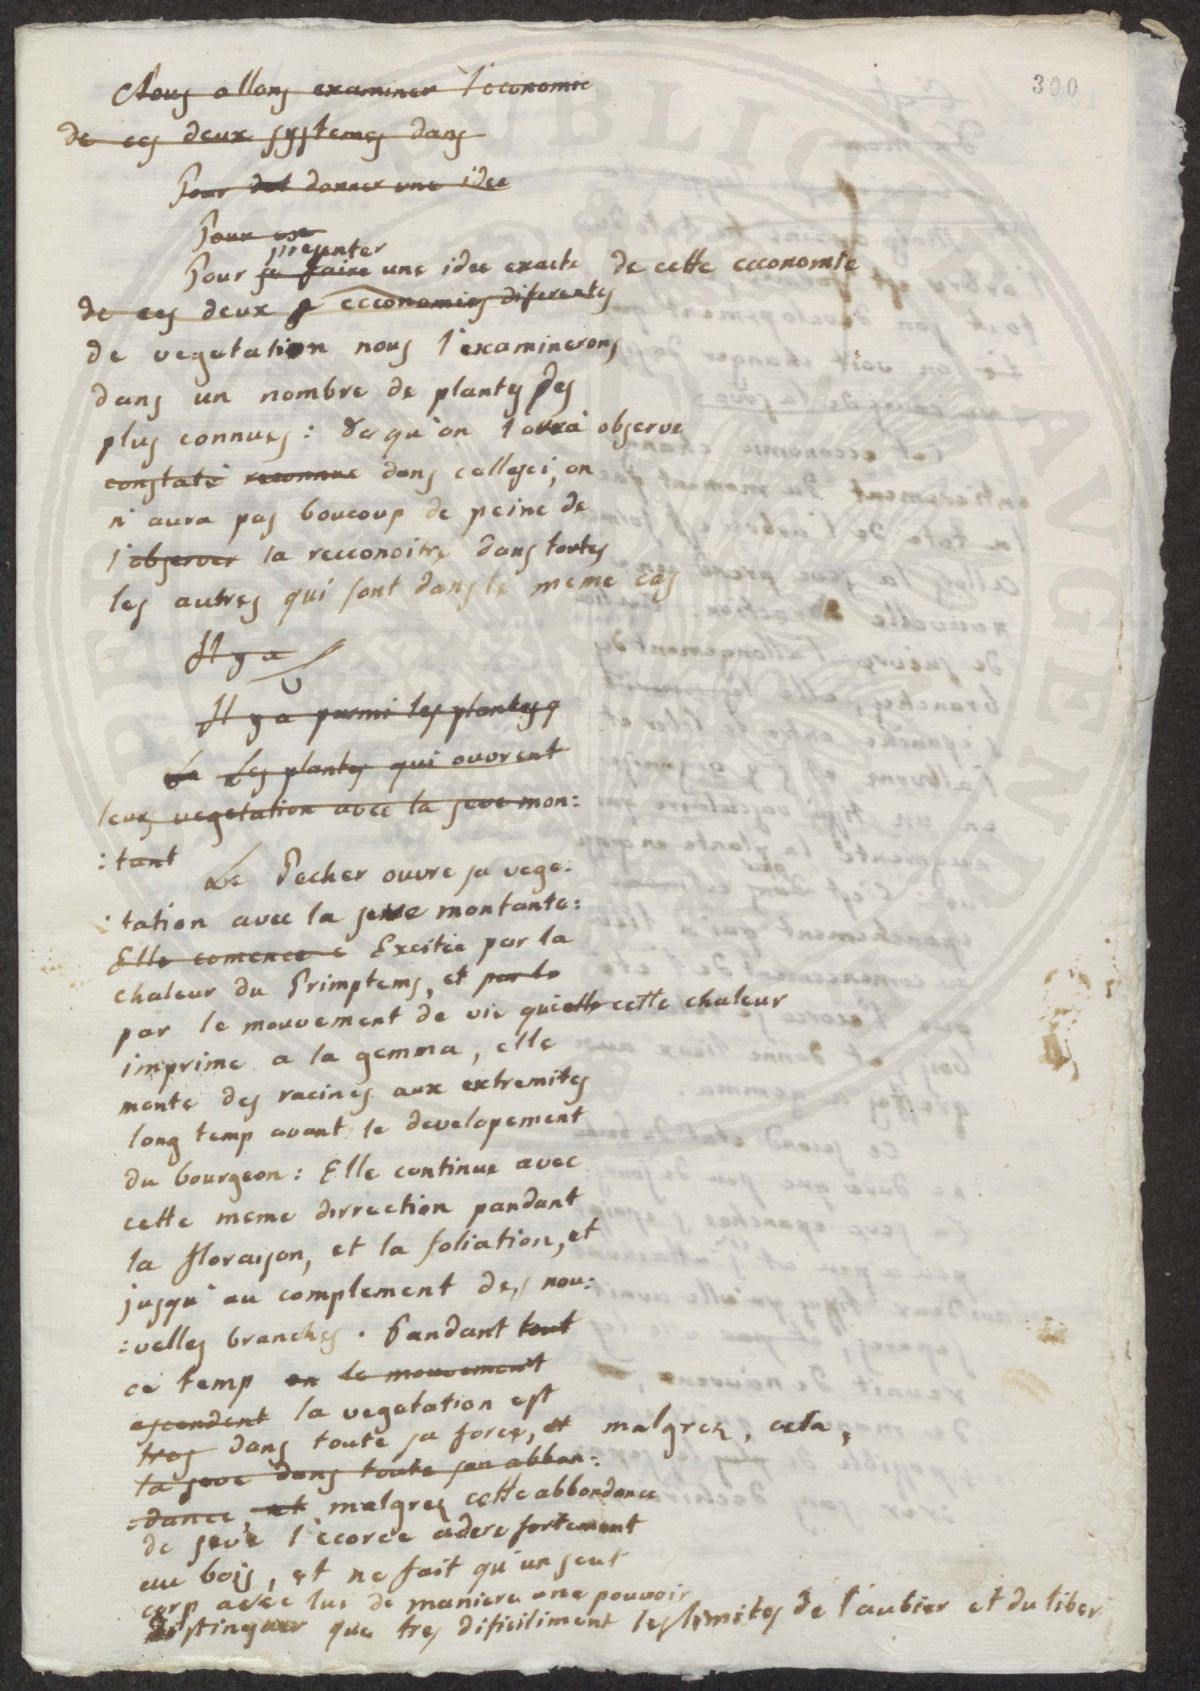 300
Nous allons examiner l'economie
de ces deux systemes dans
Pour donner une idee
Pour
presenter
Pour se faire une idee exacte de cette economie
de ces deux ecconomies diferentes
de vegetation nous l'examinerons
dans un nombre de plantes des
plus connues: des qu'on l'aura observe
constaté reconnue dans cellesci, on
n'aura pas boucoup de peine de
l'observer la reconoitre dans toutes
les autres qui sont dans le meme cas
Il y a
Il y a parmi les plantes q
Le Les plantes qui ouvrent
leur vegetation avec la seve mon:
:tant
Le Pecher ouvre sa vege:
:tation avec la seve montante:
Elle comence e Excitée par la
chaleur du Primptems, et par le
par le mouvement de vie qui elle cette chaleur
imprime a la gemma, elle
monte des racines aux extremites
long temp avant le developement
du bourgeon: Elle continue avec
cette meme dirrection pandant
la floraison, et la foliation, et
jusqu'au complement des nou:
:velles branches. Pandant tout
ce temp en le mouvement
ascendent la vegetation est
tres dans toute sa force, et malgrez, cela,
la seve dans toute son abbon:
:dance, et malgrez cette abbondance
de seve l'ecorce adere fortement
au bois, et ne fait qu'un seul
corp avec lui de maniere a ne pouvoir
distinguer que tres dificiliment les limites de l'aubier et du liber